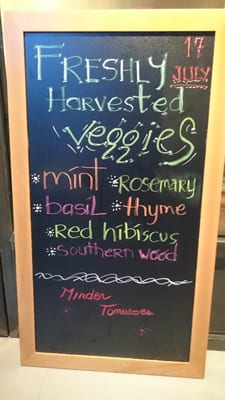 17
FRESHLY JULY
Harvested
veggies
mint *Rosemary
*basil *thyme
*Red hibiscus
*southern wood
Minder
Tomatoes